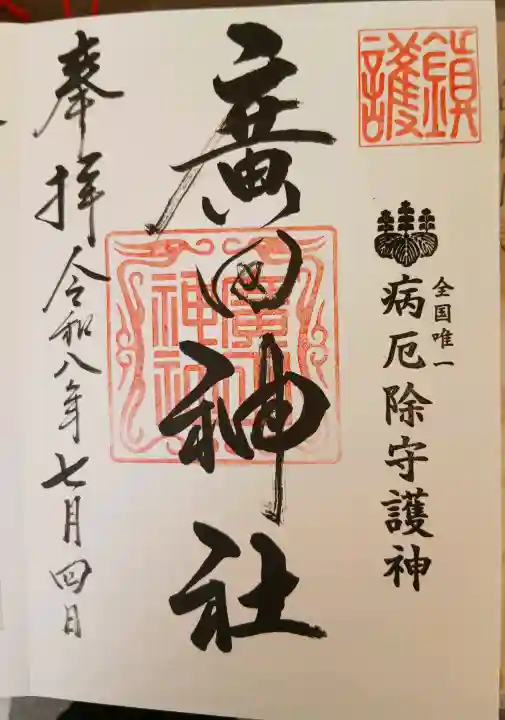 鎮護
全国唯一
病厄除守護神
廣田神社
廣田神社
奉拝 令和八年七月四日